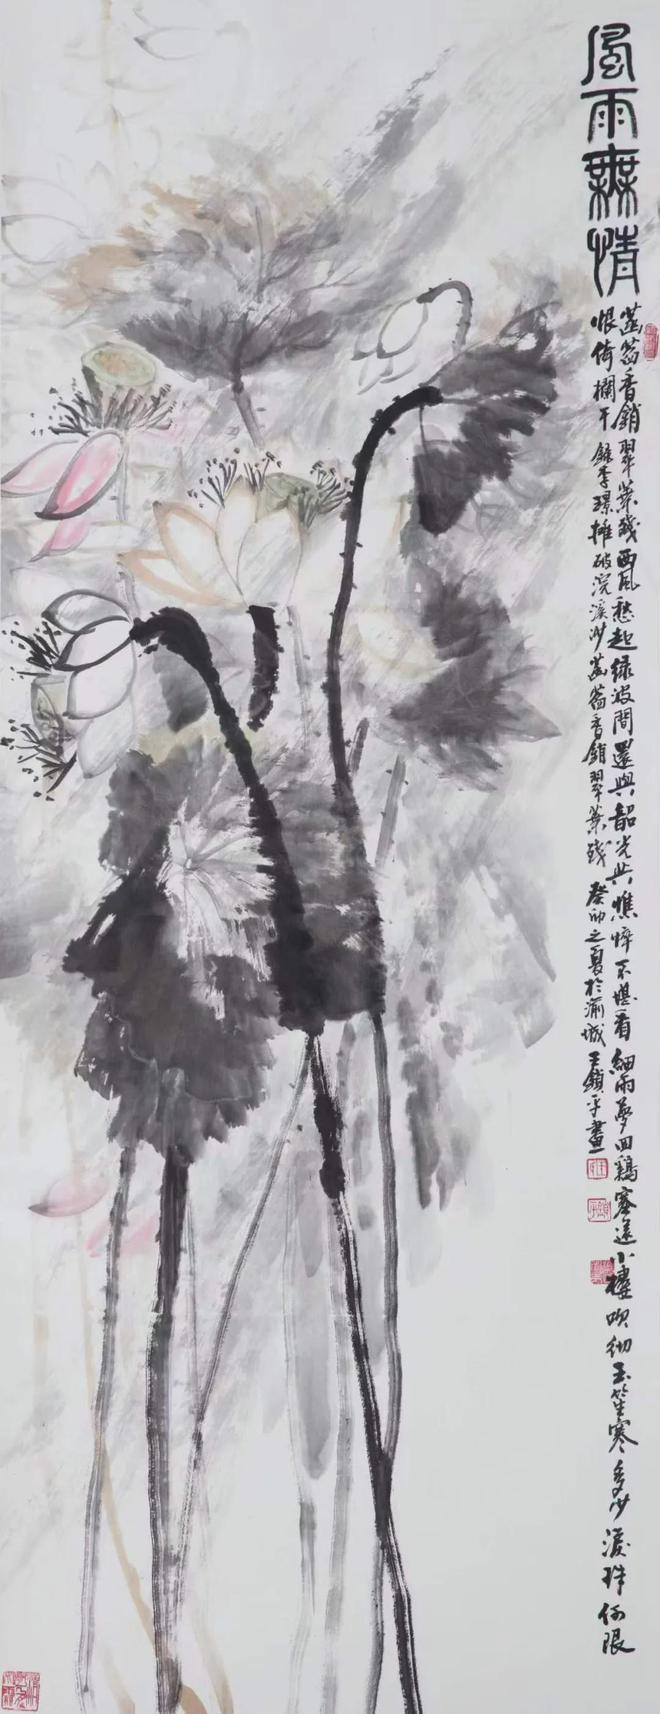 風雨無情
菡萏香銷翠葉殘西風愁起綠波間還與韶光共憔悴不堪看細雨夢回鷄塞遠小樓吹彻玉笙寒多少淚珠何限
恨倚欄干 錄李璟攤破浣溪沙菡萏香銷翠葉殘 癸卯之夏於渝城 王鎖平畫